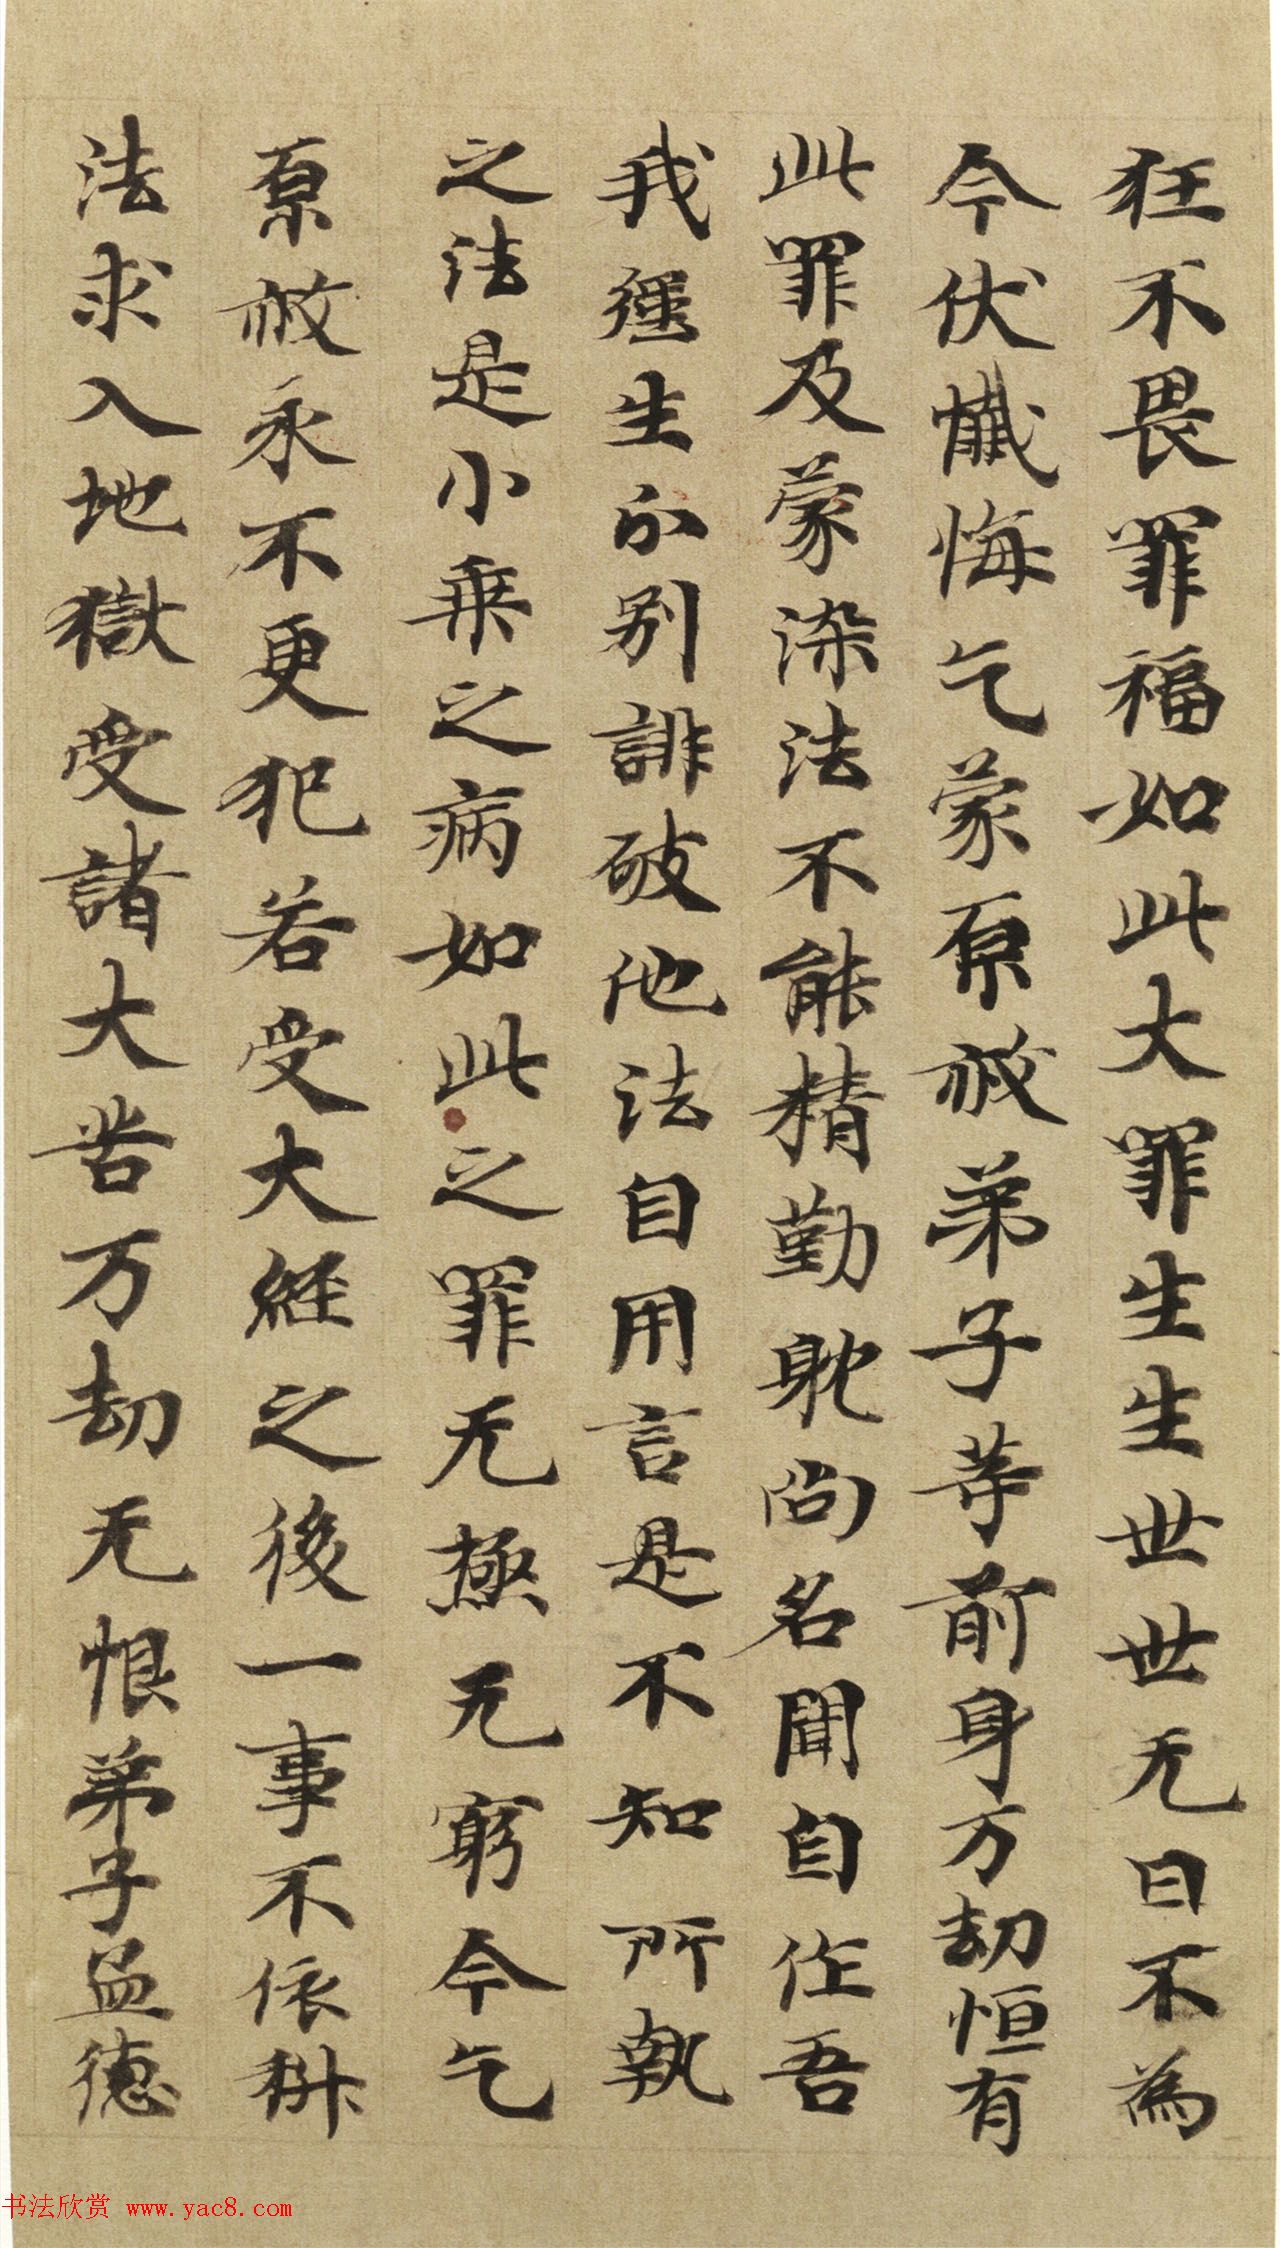 狂不畏罪福如此大罪生生世世无日不為
今伏懺悔乞蒙原赦弟子等前身万劫恒有
此罪及蒙染法不能精勤躭尚名聞自作吾
我强生分别誹破他法自用言是不知所執
之法是小乗之病如此之罪无極无窮今乞
原赦永不更犯若受大經之後一事不依科
法求入地獄受諸大苦万劫无恨弟子孟德
书法欣赏 www.yac8.com